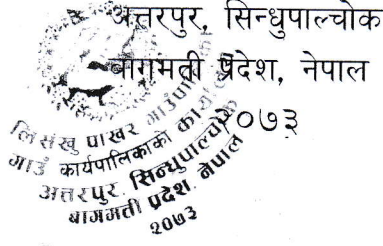 अत्तरपुर, सिन्धुपाल्चोक
बागमती प्रदेश, नेपाल
२०७३
लिसंखु पाखर गाउँपालिका
गाउँ कार्यपालिकाको कार्यालय
अत्तरपुर, सिन्धुपाल्चोक
बागमती प्रदेश, नेपाल
२०७३